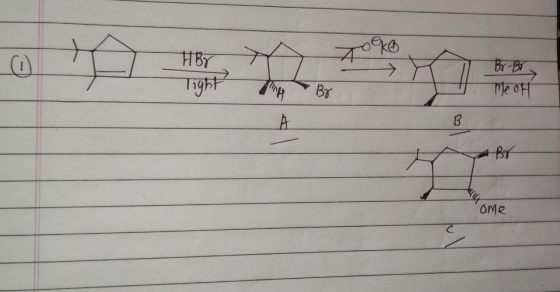 ①
HBr
light
H
Br
A
O⊖K⊕
B
Br-Br
MeOH
Br
OMe
C